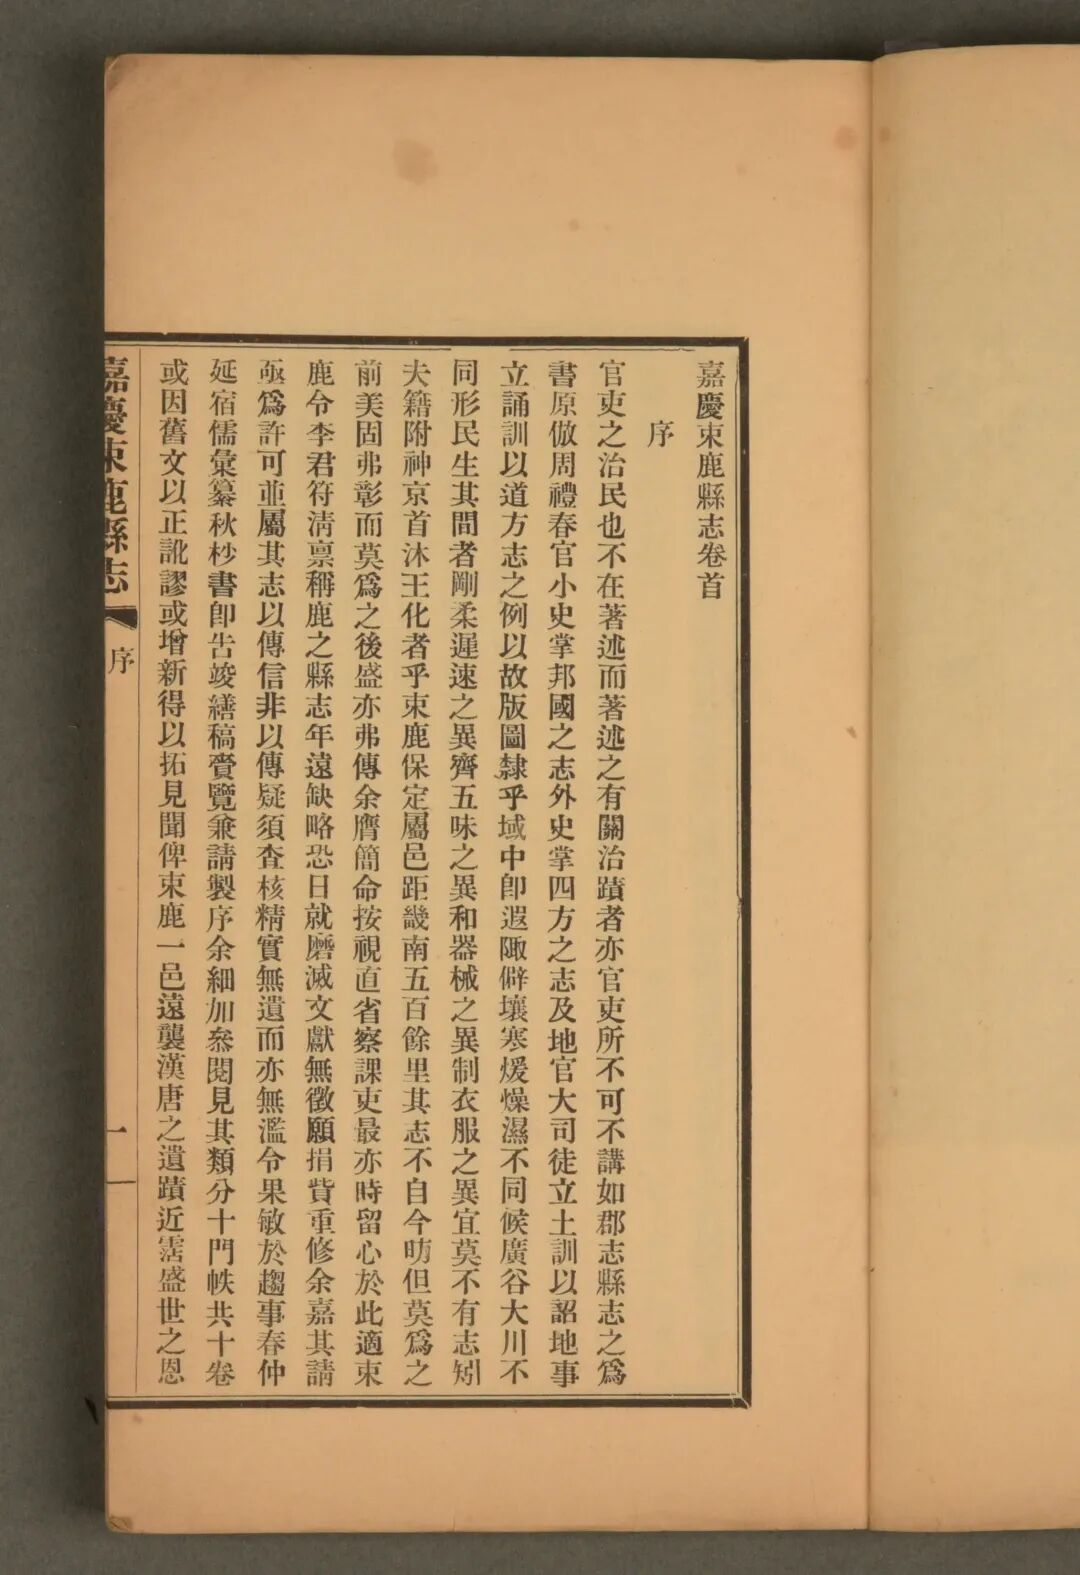 嘉慶束鹿縣志卷首
序
官吏之治民也不在著述而著述之有關治蹟者亦官吏所不可不講如郡志縣志之爲
書原倣周禮春官小史掌邦國之志外史掌四方之志及地官大司徒立土訓以詔地事
立誦訓以道方志之例以故版圖隸乎域中卽遐陬僻壤寒煖燥濕不同候廣谷大川不
同形民生其間者剛柔遲速之異齊五味之異和器械之異制衣服之異宜莫不有志矧
夫籍附神京首沐王化者乎束鹿保定屬邑距畿南五百餘里其志不自今昉但莫爲之
前美固弗彰而莫爲之後盛亦弗傳余膺簡命按視直省察課吏最亦時留心於此適束
鹿令李君符淸稟稱鹿之縣志年遠缺略恐日就磨滅文獻無徵願捐貲重修余嘉其請
亟爲許可並屬其志以傳信非以傳疑須查核精實無遺而亦無濫令果敏於趨事春仲
延宿儒彙纂秋杪書卽吿竣繕稿賫覽兼請製序余細加叅閱見其類分十門帙共十卷
或因舊文以正訛謬或增新得以拓見聞俾束鹿一邑遠襲漢唐之遺蹟近霑盛世之恩
嘉慶束鹿縣志
序
一